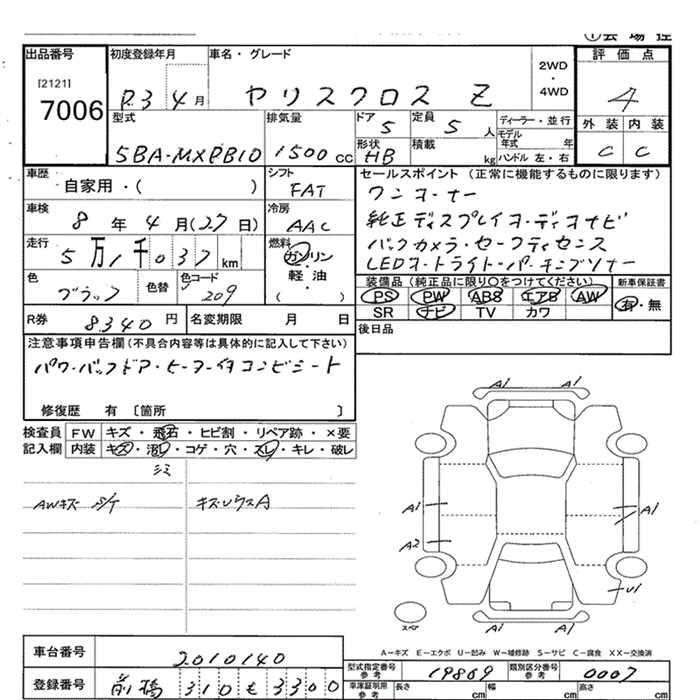 出品番号
[2121]
7006
初度登録年月
R.3 4月
車名・グレード
ヤリスクロス Z
2WD
・
4WD
評価点
4
外装 内装
C C
型式
5BA-MXPB10
排気量
1500cc
ドア
5
定員
5人
形状
HB
積載
kg
ディーラー・並行
モデル年式 年
ハンドル 左・右
車歴
自家用・( )
シフト
FAT
車検
8年4月(27日)
冷房
AAC
走行
5万1千037km
燃料
ガソリン
軽・油
( )
色
ブラック
色替
色コード
209
R券
8340円
名変期限 月 日
セールスポイント(正常に機能するものに限ります)
ワンオーナー
純正ディスプレイオーディオナビ
バックカメラ・セーフティセンス
LEDオートライト・パーキングソナー
装備品(純正品に限り○をつけてください)
PS PW ABS エアB AW
SR ナビ TV カワ
新車保証書
有・無
後日品
注意事項申告欄(不具合内容等は具体的に記入して下さい)
パワーバックドア・ヒーター付コンビシート
修復歴 有 〔箇所 〕
検査員
記入欄
FW キズ・飛石・ヒビ割・リペア跡・×要
内装 キズ・汚レ・コゲ・穴・スレ・キレ・破レ
シミ
AWキズ
A1 A1
A1 A1
A2
U1
A1 A1
スペア
A−キズ E−エクボ U−凹み W−補修跡 S−サビ C−腐食 XX−交換済
車台番号
2010140
登録番号
前橋 310 も 3300
型式指定番号
参考
19869
類別区分番号
参考
0007
車庫証明用
参考
長さ cm 幅 cm 高さ cm